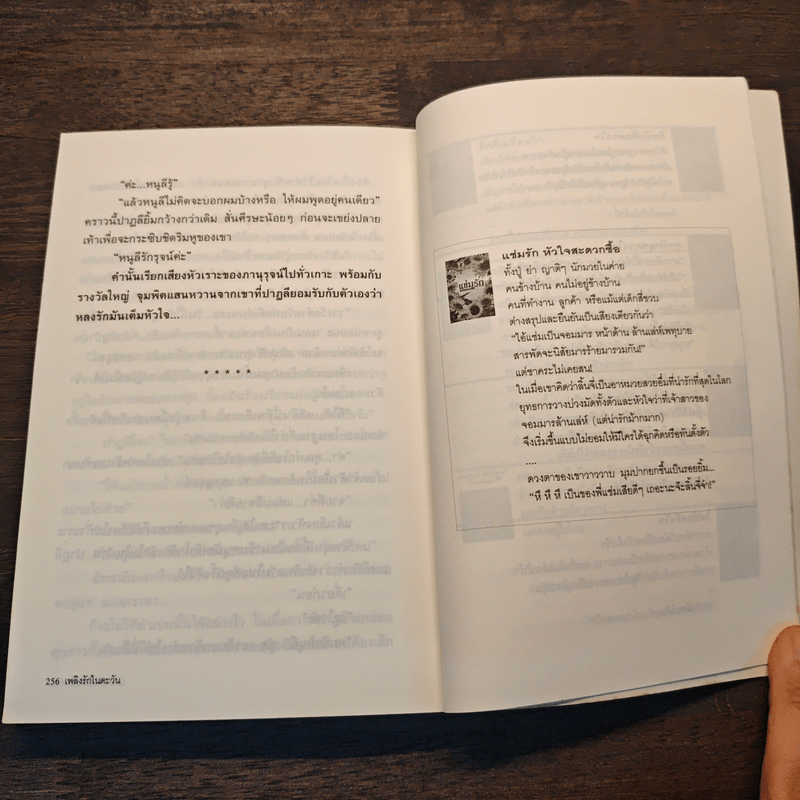 “ค่ะ...หนูลีรู้”
“แล้วหนูลีไม่คิดจะบอกผมบ้างหรือ ให้ผมพูดอยู่คนเดียว”
คราวนี้ปาฏลียิ้มกว้างกว่าเดิม สั่นศีรษะน้อยๆ ก่อนจะเขย่งปลาย
เท้าเพื่อจะกระซิบชิดริมหูของเขา
“หนูลีรักรุจน์ค่ะ”
คำนั้นเรียกเสียงหัวเราะของภานุรุจน์ไปทั่วเกาะ พร้อมกับ
รางวัลใหญ่ จุมพิตแสนหวานจากเขาที่ปาฏลียอมรับกับตัวเองว่า
หลงรักมันเต็มหัวใจ...
* * * * *
256 เพลิงรักในตะวัน
แซ่มรัก
แซ่มรัก หัวใจสะดวกซื้อ
ทั้งปู่ ย่า ญาติๆ นักมวยในค่าย
คนข้างบ้าน คนไม่อยู่ข้างบ้าน
คนที่ทำงาน ลูกค้า หรือแม้แต่เด็กสี่ขวบ
ต่างสรุปและยืนยันเป็นเสียงเดียวกันว่า
“ไอ้แซ่มเป็นจอมมาร หน้าด้าน ล้านเล่ห์เพทุบาย
สารพัดจะนิสัยมารร้ายมารวมกัน!”
แต่ชาคระไม่เคยสน!
ในเมื่อเขาคิดว่าลิ้นจี่เป็นอาหมวยสวยอึ๋มที่น่ารักที่สุดในโลก
ยุทธการวางบ่วงมัดทั้งตัวและหัวใจว่าที่เจ้าสาวของ
จอมมารล้านเล่ห์ (แต่น่ารักม้ากมาก)
จึงเริ่มขึ้นแบบไม่ยอมให้มีใครได้ฉุกคิดหรือทันตั้งตัว
....
ดวงตาของเขาวาววาบ มุมปากยกขึ้นเป็นรอยยิ้ม...
“หึ หึ หึ เป็นของพี่แซ่มเสียดีๆ เถอะนะจ๊ะลิ้นจี่จ๋า!”